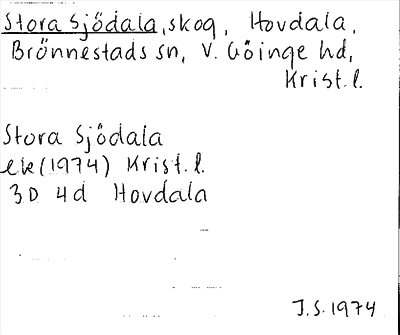 Stora Sjödala, skog, Hovdala,
Brönnestads sn, V. Göinge hd,
Krist. l.
Stora Sjödala
ek (1974) Krist. l.
3D 4d Hovdala
J.S. 1974